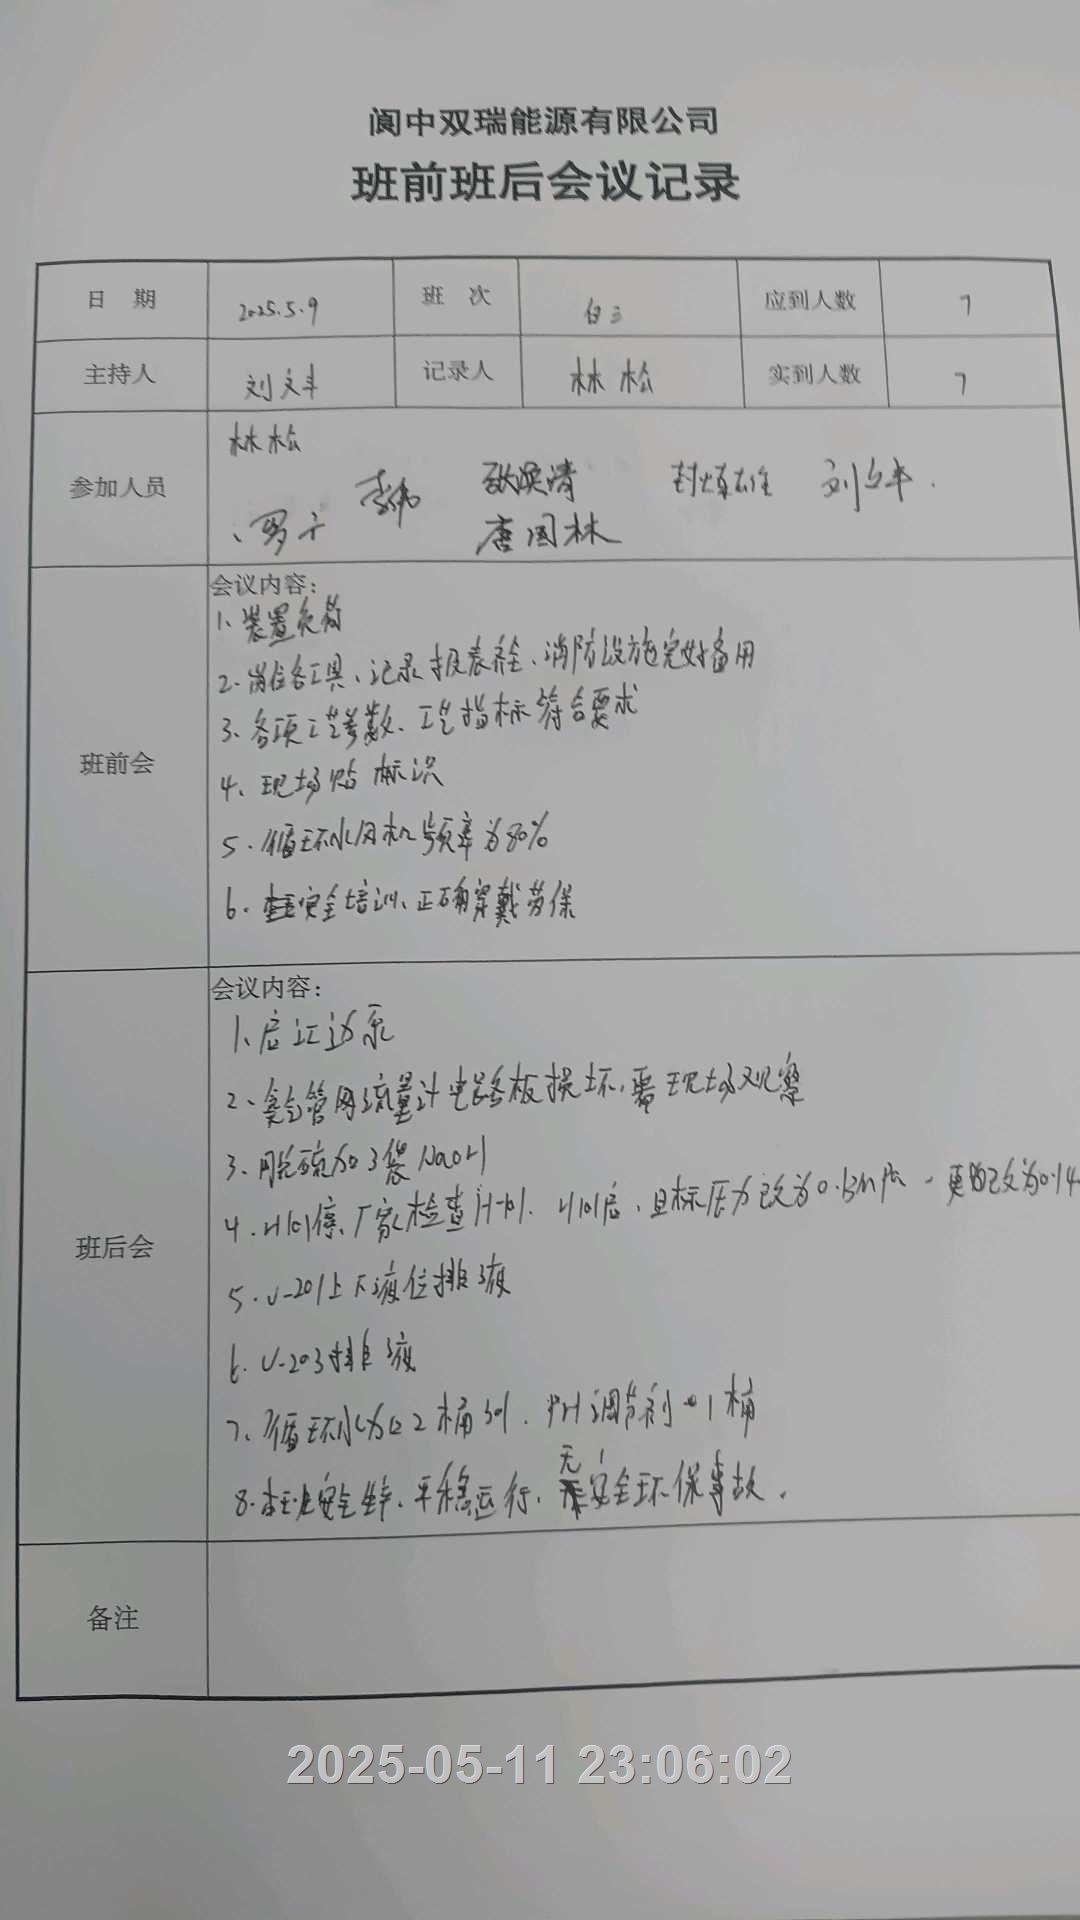 阆中双瑞能源有限公司
班前班后会议记录
日 期 2025.5.9 班 次 白三 应到人数 7
主持人 刘文丰 记录人 林松 实到人数 7
参加人员
林松
李伟 封炼雄 刘文丰.
、罗 唐国林
班前会
会议内容：
1、装置负荷
2、岗位各工具、记录报表齐全、消防设施完好备用
3、各项工艺参数、工艺指标符合要求
4、现场贴标识
5、循环水风机频率为80%
6、安全培训、正确穿戴劳保
班后会
会议内容：
1、启江边泵
2、氮气管网流量计电路板损坏，需现场观察
3、脱硫加3袋NaOH
4、H101停、厂家检查H-101. H101启，目标压力改为 更改为0.14
5、V-201上下液位排液
6、V-203排液
7、循环水加2桶301、PH调节剂1桶
8、本班安全生产、平稳运行、无安全环保事故.
备注
2025-05-11 23:06:02